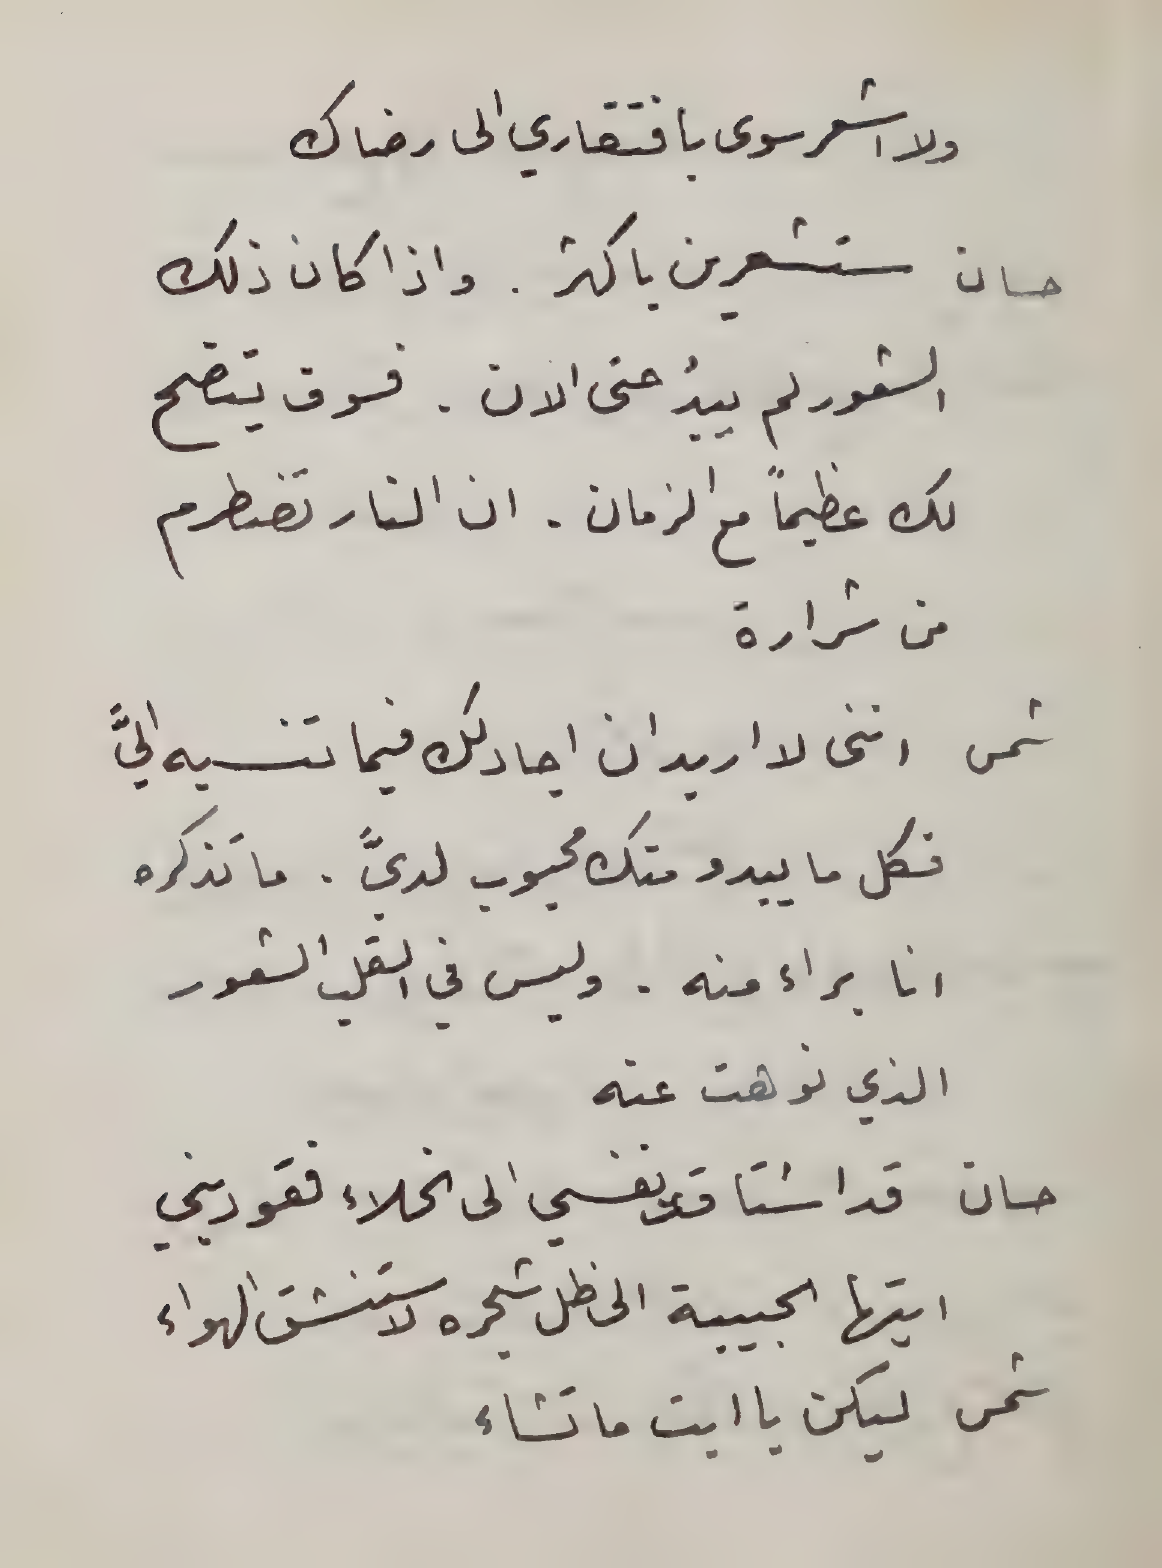 ولا اشعر سوى بافتقاري الى رضاك
حسان ستشعرين باكثر . واذا كان ذلك
الشعور لم يبدُ حتى الان . فسوف يتضح
لك عظيماً مع الزمان . ان النار تضطرم
من شرارة
شمس انني لا اريد ان اجادلك فيما تنسبه اليَّ
فكل ما يبدو منك محبوب لديَّ . ما تذكره
انا براء منه . وليس في القلب الشعور
الذي نوهت عنه
حسان قد اشتاقت نفسي الى الخلاء فقوديني
ايتها الحبيبة الى ظل شجره لاستنشق الهواء
شمس ليكن يا ابت ما تشاء